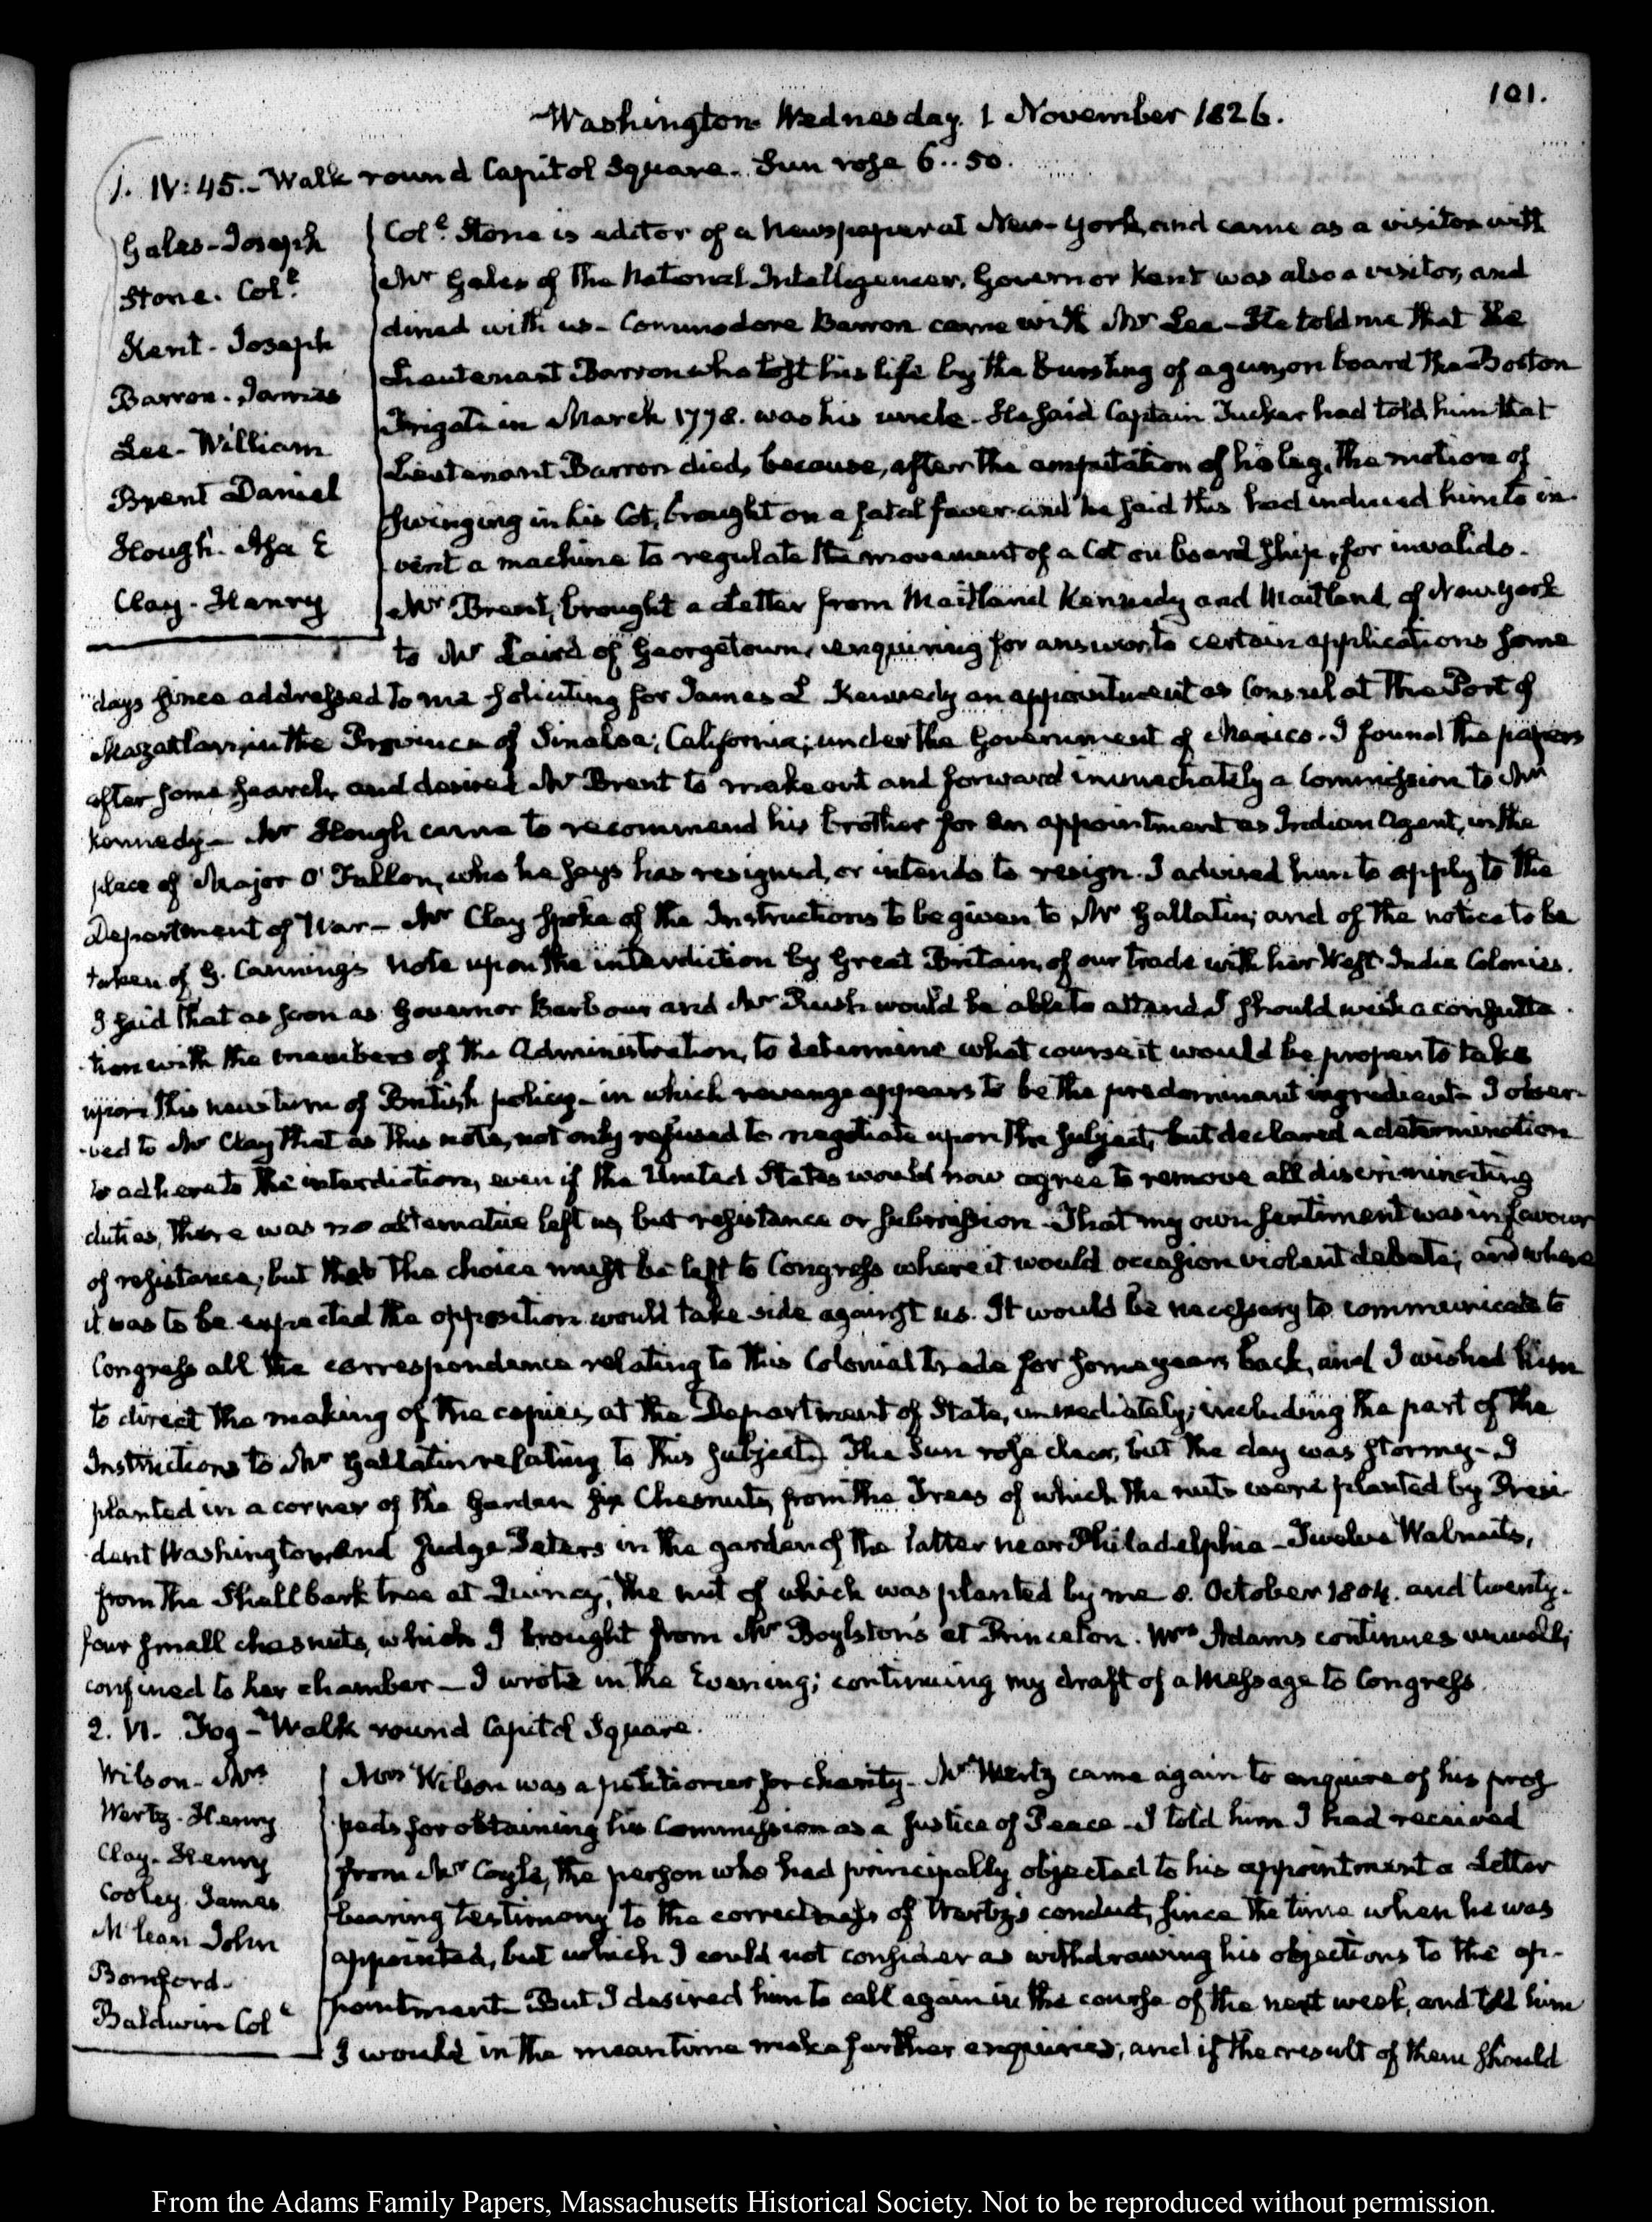 101.
Washington Wednesday. 1 November 1826.
1. IV:45.- Walk round Capitol Square. Sun rose 6..50.
Gales-Joseph
Stone. Colᵉ
Kent-Joseph
Barron. James
Lee-William
Brent Daniel
Hough. Asa E
Clay-Henry
Colᵉ Stone is editor of a Newspaper at New-York, and came as a visitor with
Mr Gales of the National Intelligencer. Governor Kent was also a visitor, and
dined with us- Commodore Barron came with Mr Lee- He told me that the
Lieutenant Barron who lost his life by the bursting of a gun, on board the Boston
Frigate in March 1778. was his uncle- He said Captain Tucker had told him that
Lieutenant Barron died, because, after the amputation of his leg, the motion of
swinging in his Cot, brought on a fatal fever and he said this had induced him to in-
vent a machine to regulate the movement of a Cot on board ship, for invalids.
Mr Brent, brought a Letter from Maitland Kennedy and Maitland, of New York
to Mr Laird of Georgetown, enquiring for answer, to certain applications some
days since addressed to me soliciting for James L Kennedy an appointment as Consul at the Port of
Mazatlan, in the Province of Sinaloa, California; under the Government of Mexico. I found the papers
after some search, and desired Mr Brent to make out and forward immediately a Commission to Mr
Kennedy- Mr Hough came to recommend his brother for an appointment as Indian Agent, in the
place of Major O'Fallon, who he says has resigned, or intends to resign. I advised him to apply to the
Department of War- Mr Clay spoke of the Instructions to be given to Mr Gallatin; and of the notice to be
taken of G. Cannings note upon the interdiction by Great Britain, of our trade with her West-India Colonies.
I said that as soon as Governor Barbour and Mr Rush would be able to attend I should wish a consulta-
tion with the members of the Administration, to determine what course it would be proper to take
upon this new turn of British policy- in which revenge appears to be the predominant ingredient- I obser-
ved to Mr Clay that as this note, not only refused to negotiate upon the subject, but declared a determination
to adhere to the interdiction, even if the United States would now agree to remove all discriminating
duties, there was no alternative left us, but resistance or submission- That my own sentiment was in favour
of resistance; but that the choice must be left to Congress where it would occasion violent debate; and where
it was to be expected the opposition would take side against us. It would be necessary to communicate to
Congress all the correspondence relating to this Colonial trade for some years back, and I wished him
to direct the making of the copies, at the Department of State, immediately; including the part of the
Instructions to Mr Gallatin relating to this subject. The Sun rose clear, but the day was stormy- I
planted in a corner of the Garden six Chesnuts, from the Trees of which the nuts were planted by Presi-
dent Washington and Judge Peters in the garden of the latter near Philadelphia- Twelve Walnuts,
from the Shellbark tree at Quincy, the nut of which was planted by me 8. October 1804. and twenty-
four small chesnuts, which I brought from Mr Boylston's at Princeton. Mrs Adams continues unwell;
confined to her chamber- I wrote in the Evening; continuing my draft of a Message to Congress.
2. VI. Fog- Walk round Capitol Square.
Wilson-Mrs
Wertz-Henry
Clay-Henry
Cooley. James
McLean John
Bomford.
Baldwin Colᵉ
Mrs Wilson was a petitioner for charity- Mr Wertz came again to enquire of his pros-
pects for obtaining his Commission as a Justice of Peace- I told him I had received
from Mr Coyle, the person who had principally objected to his appointment a Letter
bearing testimony to the correctness of Wertz's conduct, since the time when he was
appointed, but which I could not consider as withdrawing his objections to the ap-
pointment- But I desired him to call again in the course of the next week, and told him
I would in the meantime make further enquiries, and if the result of them should
From the Adams Family Papers, Massachusetts Historical Society. Not to be reproduced without permission.